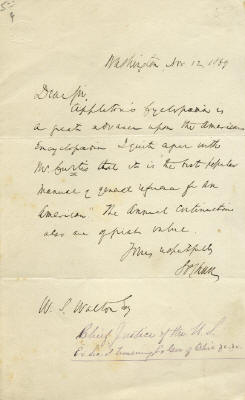 Washington Nov. 12, 1869
Dear Sir,
Appleton's Cyclopaedia is
a great advance upon the American
Encyclopaedia I quite agree with
Mr. Curtis that it is "the best popular
manual of general reference for an
American". The Annual Continuations
also are of great value.
Yours respectfully
S P Chase
W. S. Walton Esq
Chief Justice of the U.S.
Ex Sec. of Treasury, Ex Gov of Ohio &c. &c.